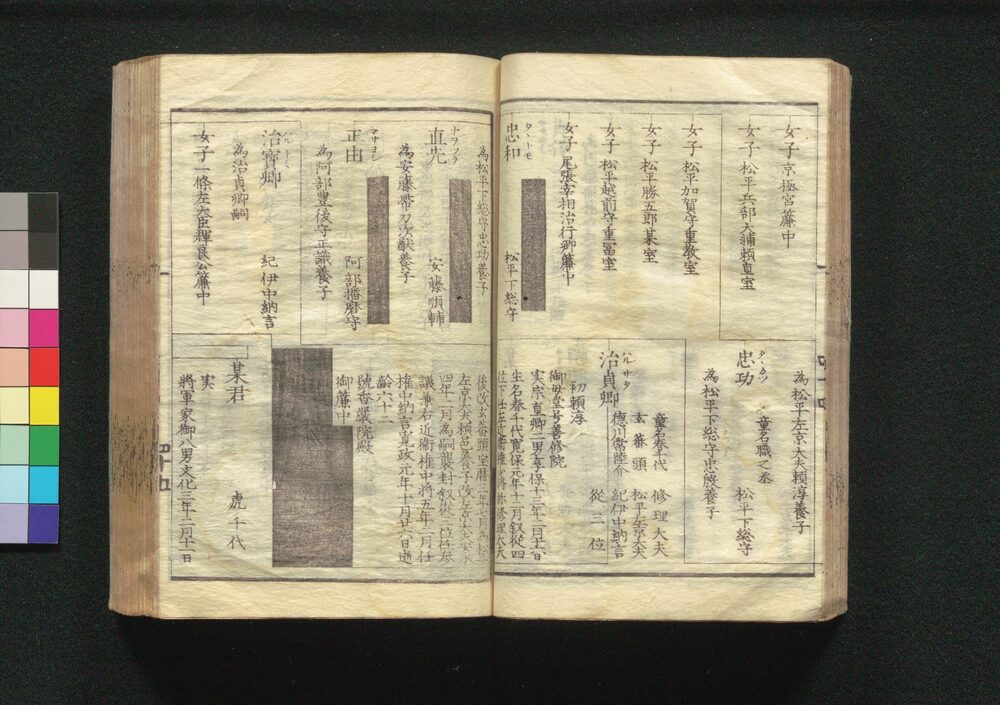 女子 京極宮簾中
女子 松平兵部大浦頼真室
女子 松平加賀守重教室
女子 松平勝五郎某室
女子 松平越前守重冨室
女子 尾張宰相治行卿簾中
忠和 タヽトモ
松平下総守
為松平左京大夫頼淳養子
忠功 タヽカツ
童名職之丞
松平下総守
為松平下総守忠啓養子
治貞卿 ハルサタ
童名春千代 修理大夫
玄蕃頭 松平左京大夫
徳川常陸介 紀伊中納言
従三位
初頼淳
御母堂号善修院
実宗直卿二男享保十三年二月十六日
生名春千代寛保元年十二月叙従四
位下任左近衛権少将称修理大夫
為松平下総守忠功養子
直先 ナヲツラ
安藤順輔
為安藤帯刀次猷養子
正由 マサヨシ
阿部播磨守
為阿部豊後守正識養子
治寶卿 ハルトミ
紀伊中納言
為治貞卿嗣
女子 一條左大臣輝良公簾中
後改玄蕃頭宝暦三年七月為松平
左京大夫頼邑養子改左京大夫安永
四年二月為嗣襲封叙従三位任参
議兼右近衛権中将五年二月任
権中納言寛政元年十月廿六日逝
齢六十二
號香嚴院殿
御簾中
某君
虎千代
実
將軍家御八男文化三年二月十一日
四十五